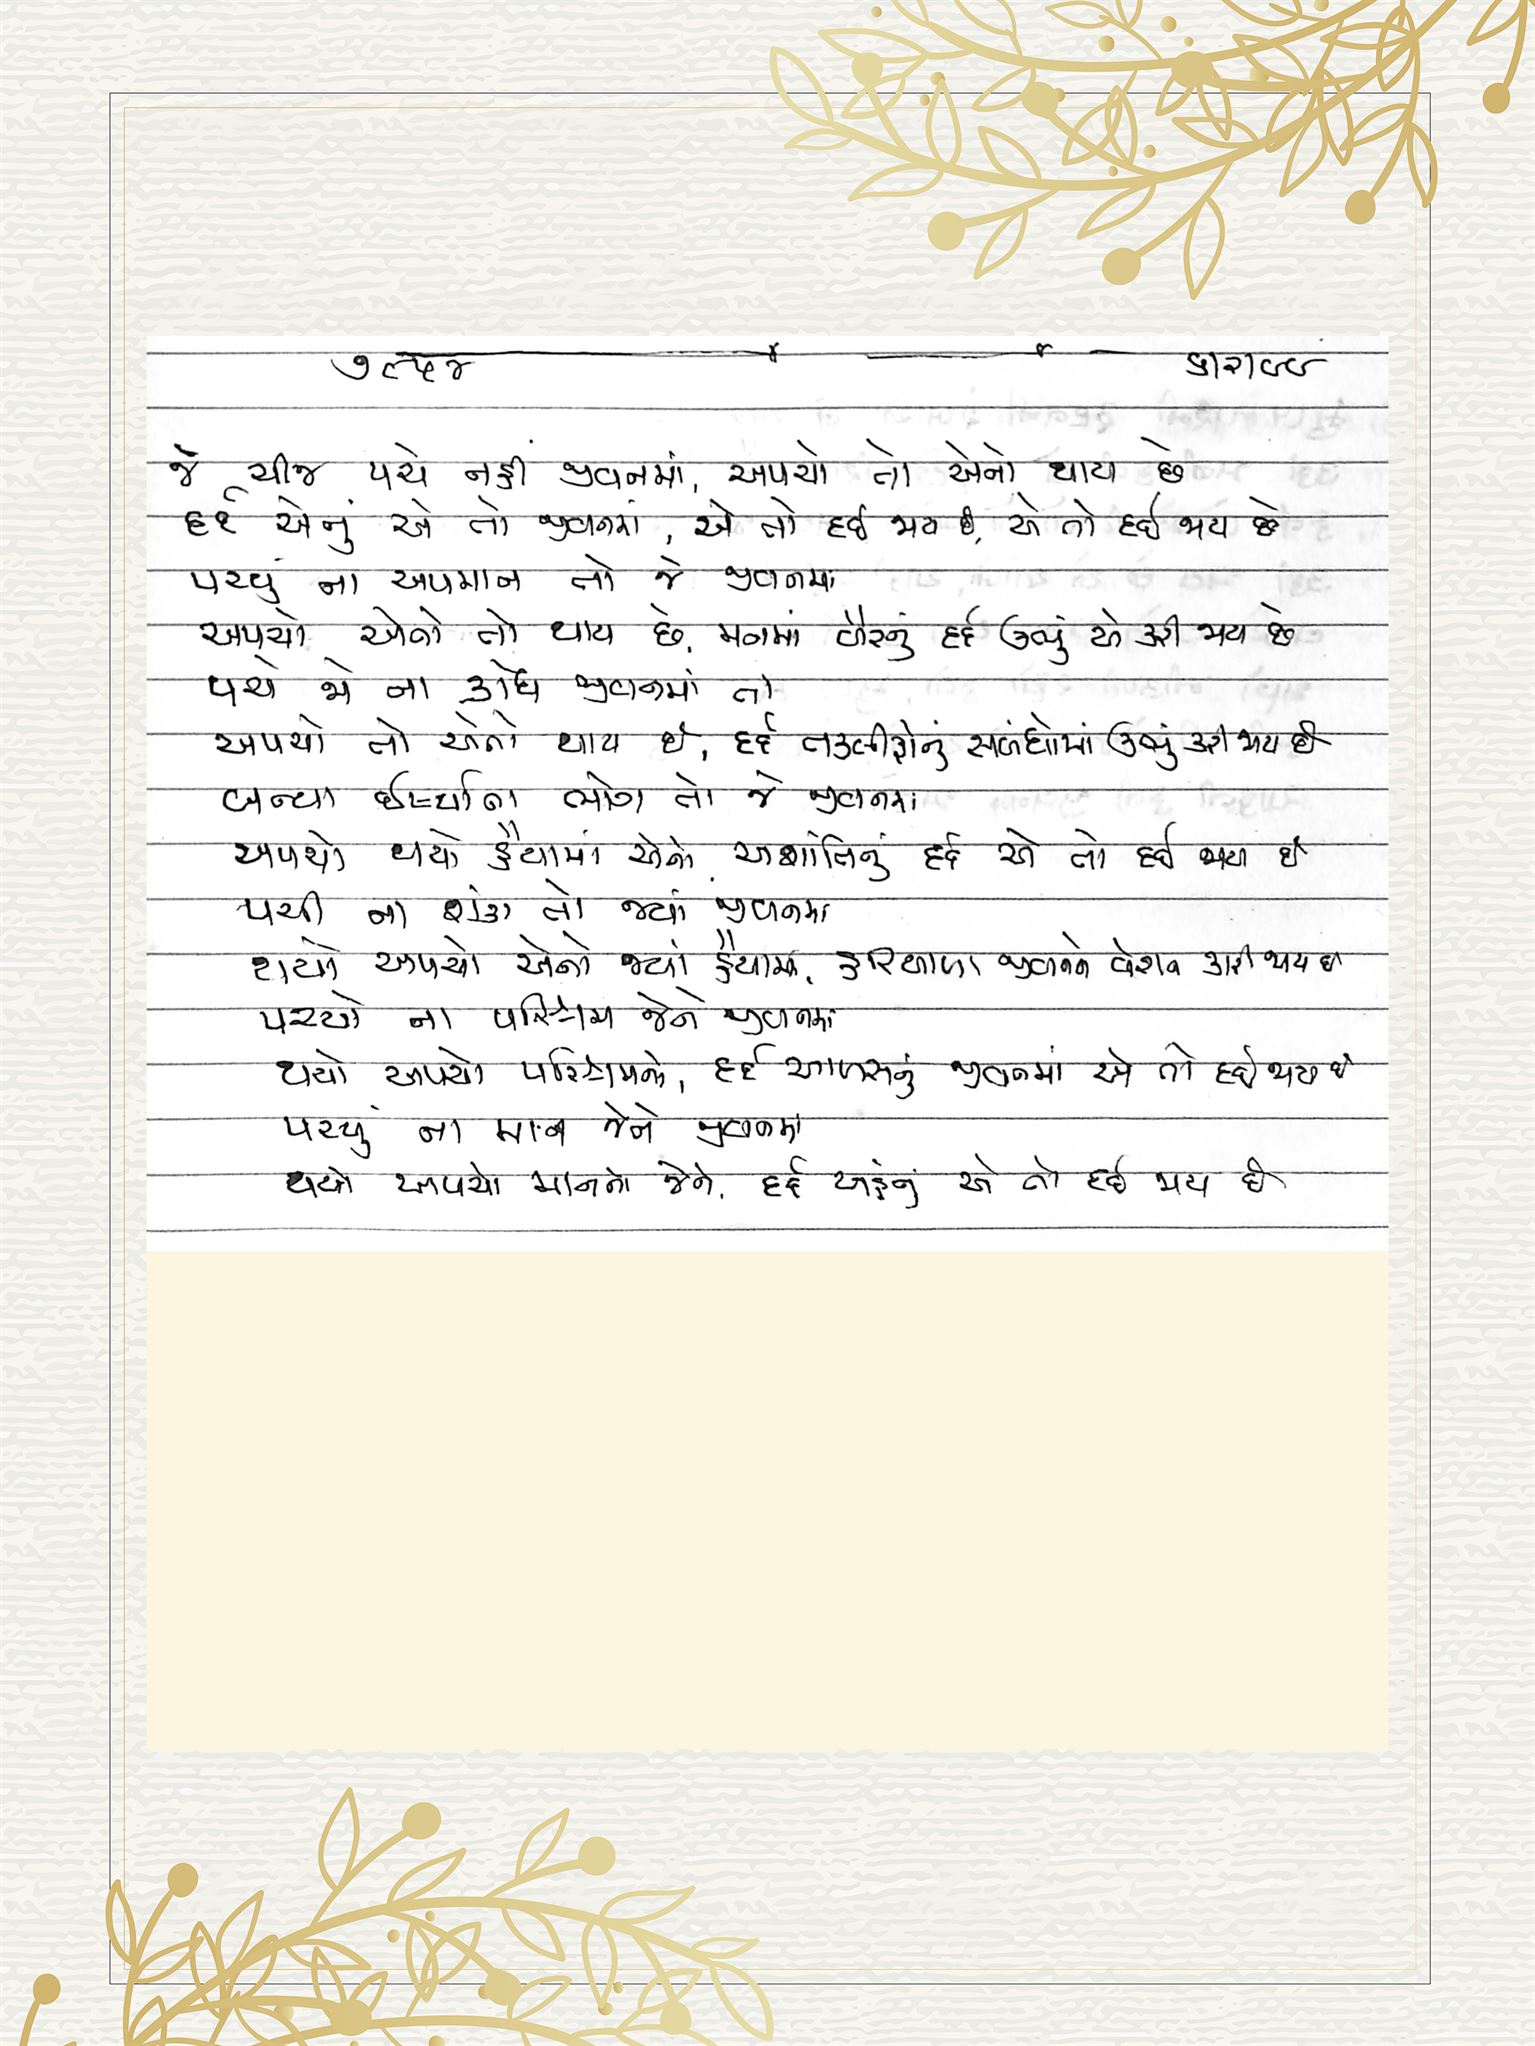 ૭૮૫૪
જે ચીજ પચે નહીં જીવનમાં, અપચો તો એનો થાય છે
દર્દ એનું એ તો જીવનમાં, એ તો દઈ જાય છે, એ તો દઈ જાય છે
પચ્યું ના અપમાન તો જે જીવનમાં
અપચો એનો તો થાય છે, મનમાં વૈરનું દર્દ ઊભું એ કરી જાય છે
પચે જો ના ક્રોધ જીવનમાં તો
અપચો તો એનો થાય છે, દર્દ તકલીફોનું સબંધોમાં ઊભું કરી જાય છે
બન્યા ઈર્ષ્યાના ભોગ તો જે જીવનમાં
અપચો થયો હૈયામાં એનો, અશાંતિનું દર્દ એ તો દઈ જાય છે
પચી ના શંકા તો જ્યાં જીવનમાં
થયો અપચો એનો જ્યાં હૈયામાં, હરિયાળા જીવનને વેરાન કરી જાય છે
પચ્યો ના પરિશ્રમ જેને જીવનમાં
થયો અપચો પરિશ્રમનો, દર્દ આળસનું જીવનમાં એ તો દઈ જાય છે
પચ્યું ના માન જેને જીવનમાં
થયો અપચો માનનો જેને, દર્દ અહંનું એ તો દઈ જાય છે